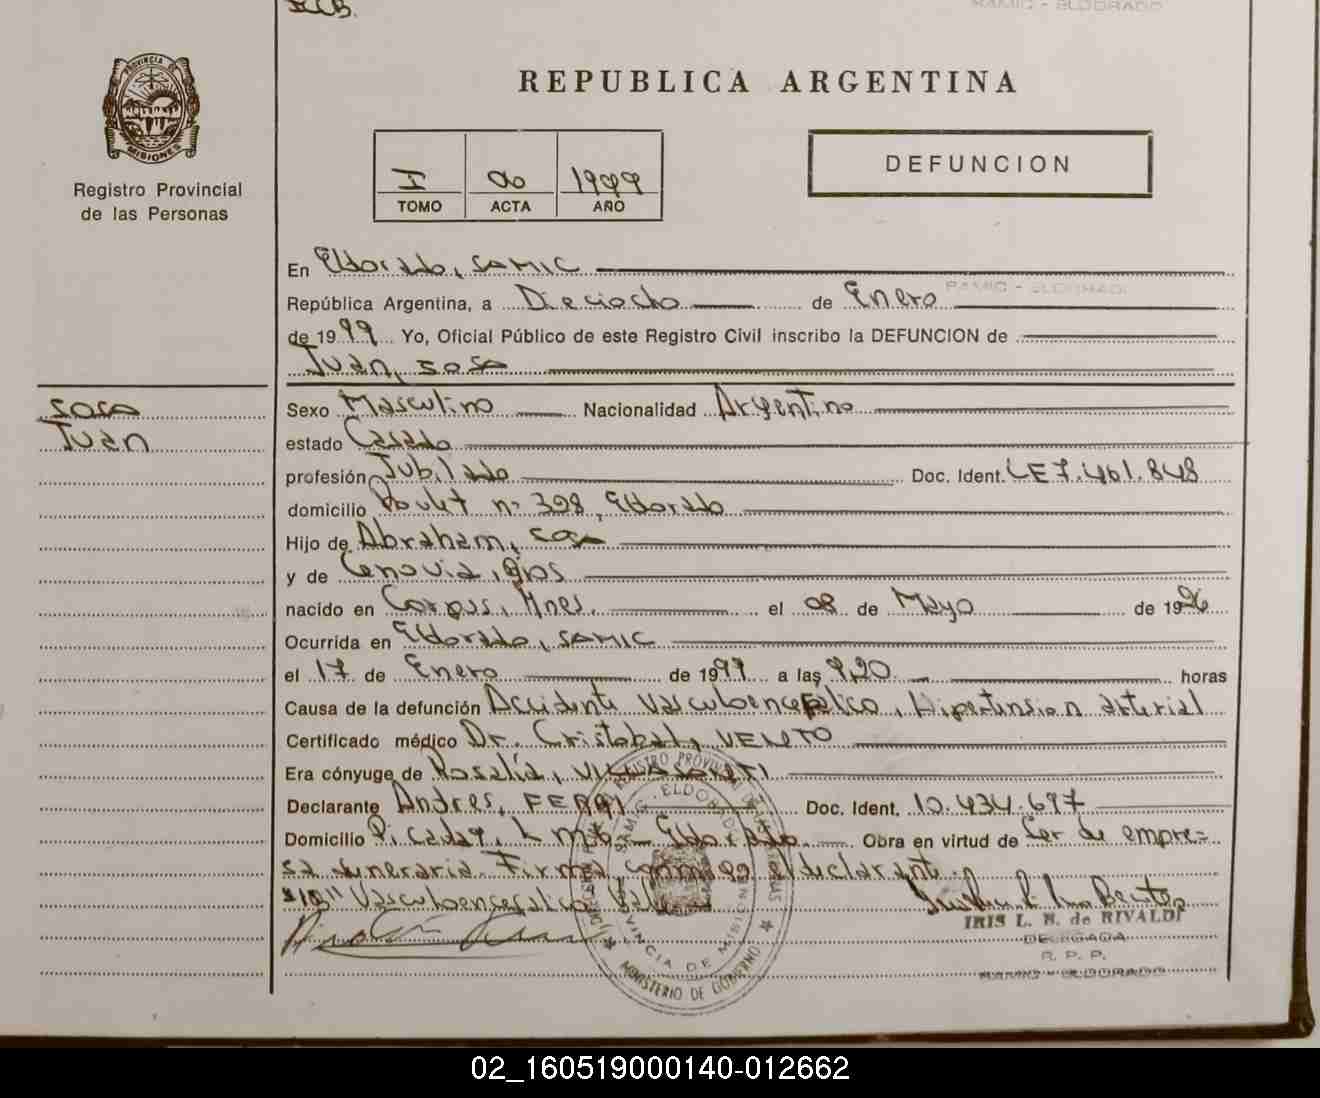 RAMIC - ELDORADO
PROVINCIA DE
MISIONES
Registro Provincial
de las Personas
REPUBLICA ARGENTINA
I
1999
TOMO ACTA AÑO
DEFUNCION
En Eldorado, SAMIC
República Argentina, a Dieciocho de Enero
RAMIC - ELDORADO
de 1999 Yo, Oficial Público de este Registro Civil inscribo la DEFUNCION de
Juan, SOSA
SOSA
Juan
Sexo Masculino Nacionalidad Argentino
estado Casado
profesión Jubilado Doc. Ident. LE 7.461.848
domicilio n° 398, Eldorado
Hijo de Abraham, SOSA
y de Cenovia,
nacido en Corpus, Mnes. el 08 de Mayo de 19
Ocurrida en Eldorado, SAMIC
el 17 de Enero de 1999 a las 9,20 horas
Causa de la defunción Accidente Vasculoencefalico, Hipertension arterial
Certificado médico Dr. Cristobal, VENTO
Era cónyuge de Rosalía,
Declarante Andres, FERRI Doc. Ident. 10.434.697
Domicilio Picada 9, L Eldorado. Obra en virtud de Ser de empre=
sa funeraria. Firma conmigo el declarante.
S/B" Vasculoencefalico Vale
IRIS L. B. de RIVALDI
DELEGADA
R. P. P.
RAMIC - ELDORADO
REGISTRO PROVINCIAL DE LAS PERSONAS
MINISTERIO DE GOBIERNO
RAMIC - ELDORADO
PROVINCIA DE MISIONES
02_160519000140-012662